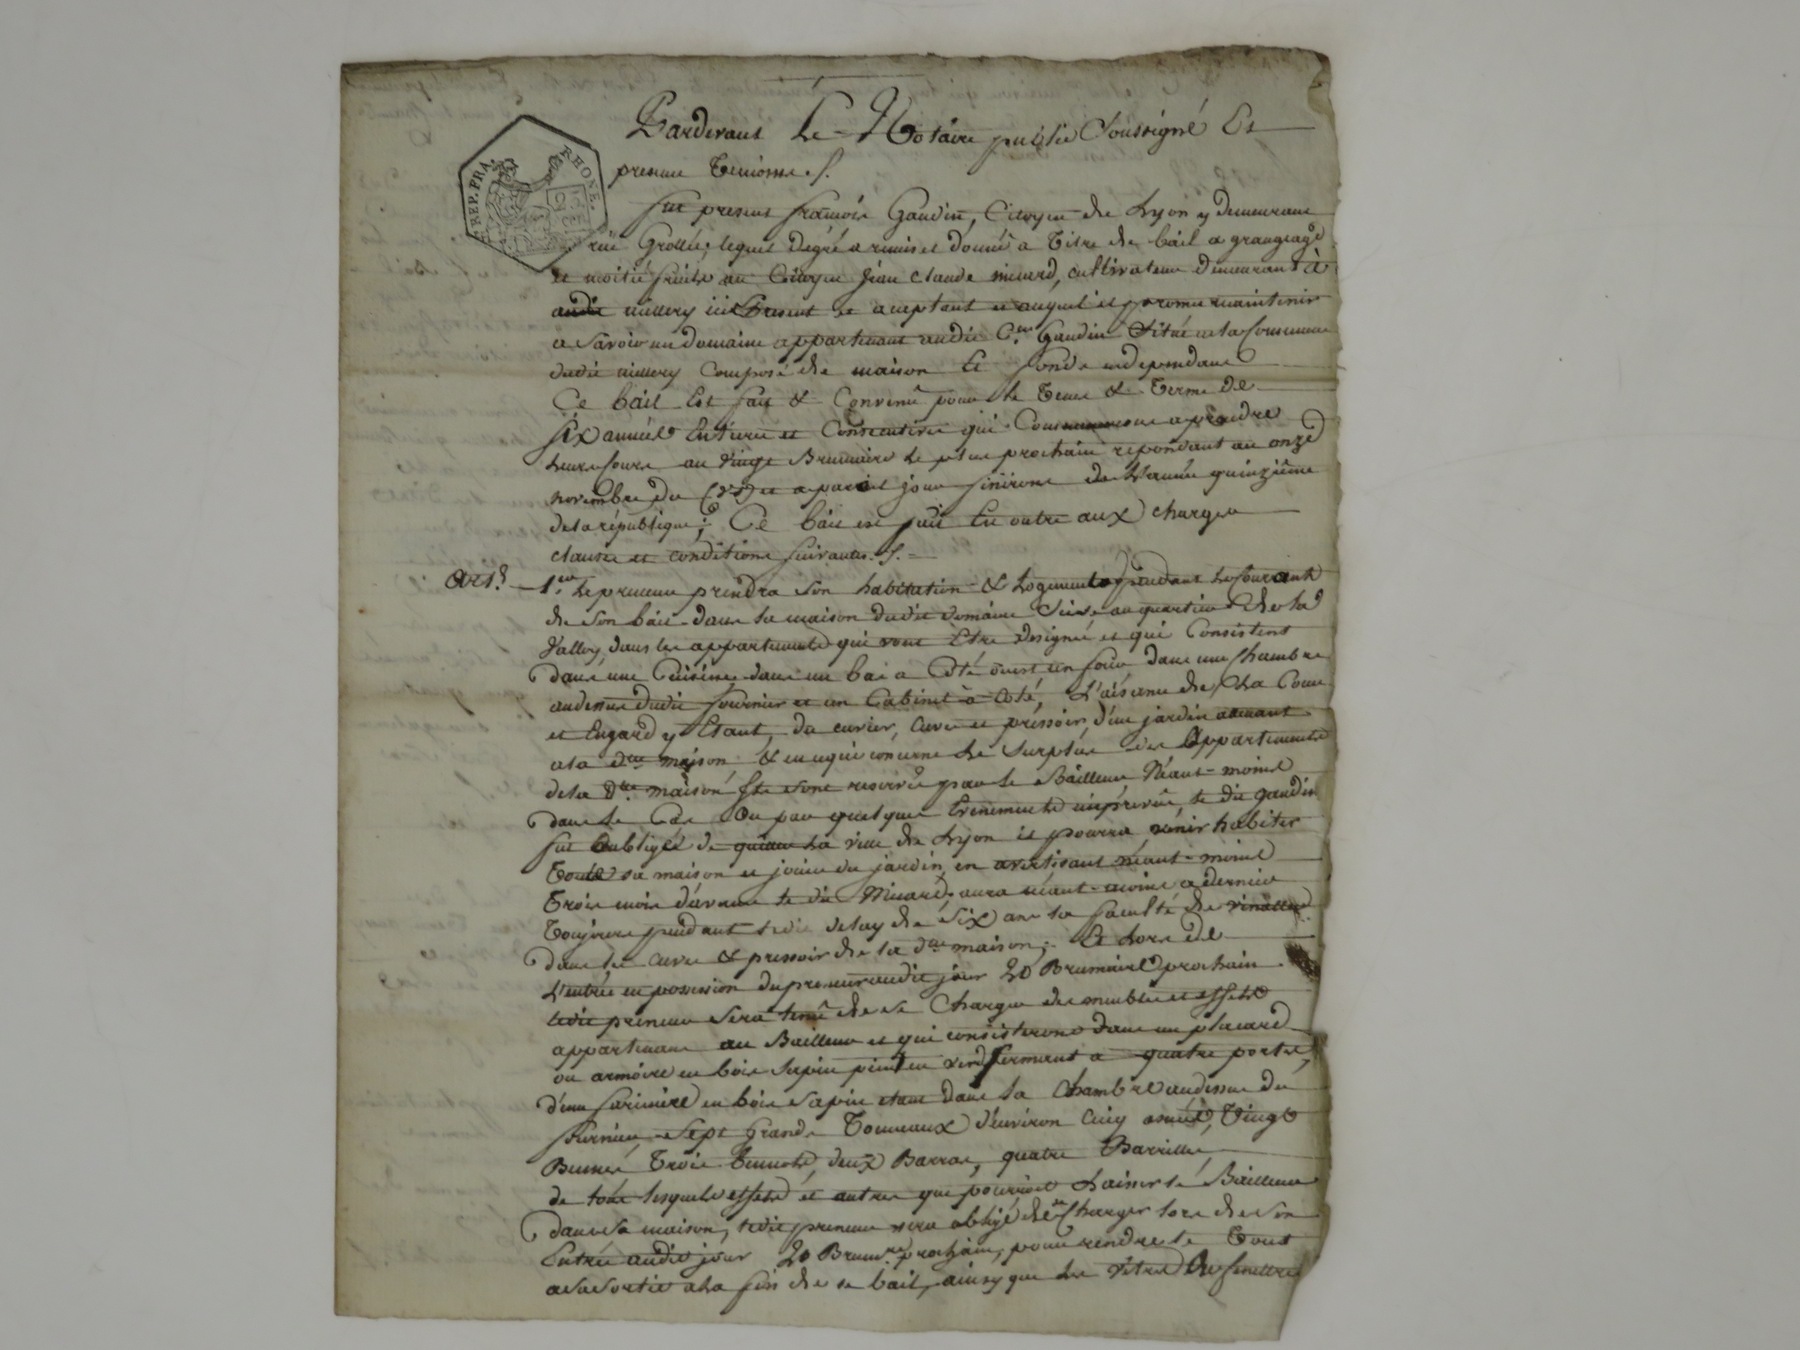 REP. FRA. RHONE.
25
Pardevant Le Notaire public Soussigné Et
presence Temoins.
fut present françois Gaudin, Citoyen de Lyon y demeurant
rue Grollée, lequel degré a remis et donné a Titre de bail a grangeage
et moitié fruits au Citoyen Jean Claude micard, cultivateur demeurant à
audit millery ici Present et acceptant et auquel il promet maintenir
a Savoir un domaine appartenant audit C.en Gaudin Situé en la Commune
dudit millery Composé de maison Et fonds en dependant
Ce bail Est fait & Convenu pour le Tems & Terme de
Six années Entieres et Consecutives qui Commenceront a prendre
leurs Cours au vingt Brumaire le plus prochain repondant au onze
novembre du (vs) et a pareil jour finiront de L'année quinzième
de la république; Ce bail est fait En outre aux charges
clauses et conditions suivantes.
Art. 1.er Le preneur prendra son habitation & Logement pendant le Courant
de Son bail dans la maison dudit domaine Sise au quartier de la
Valloy, dans les appartements qui vont Etre designés et qui Consistent
dans une Cuisine dans un bas a Coté ou est un four dans une Chambre
audessus dudit fournier et un Cabinet à coté, L'aisance de la Cour
et Engard y Etant, du cuvier, Cuves et pressoir, d'un jardin attenant
a la d.te maison, & en ce qui concerne Le Surplus des Appartements
de la d.te maison Ils sont reservés par le Bailleur Néant-moins
dans Le Cas Ou par quelques Evenements imprevus, le dit gaudin
fut Oubligé de quitter La ville de Lyon il pourra venir habiter
Toute sa maison et jouir du jardin, en avertisant néant-moins
Trois mois d'avance le dit Micard, aura néant-moins a dernier
Toujours pendant ledit delay de Six ans la faculté de
dans les cuves & pressoir de la d.te maison; Et Lors de
L'entrée en possession du preneur audit jour 20 Brumaire prochain
ledit preneur Sera tenu de se Charger des meubles et effets
appartenant au Bailleur et qui consisteront dans un placard
ou armoire en bois Sapin peint en verd fermant a quatre portes,
d'une farinire en bois Sapin etant dans la Chambre audessus du
fournier, Sept Grands Tonneaux d'environ Cinq anées, Vingt
Bennes Trois, deux Barras, quatre Barrilles,
de tous lesquels effets et autres que pourroit Laisser le Bailleur
dans Sa maison, ledit preneur sera obligé de Charger lors de Son
Entrée audit jour 20 Brum.re prochain, pour rendre le Tout
a Sa Sortie a La fin de ce bail, ainsy que les vitres des fenêtres